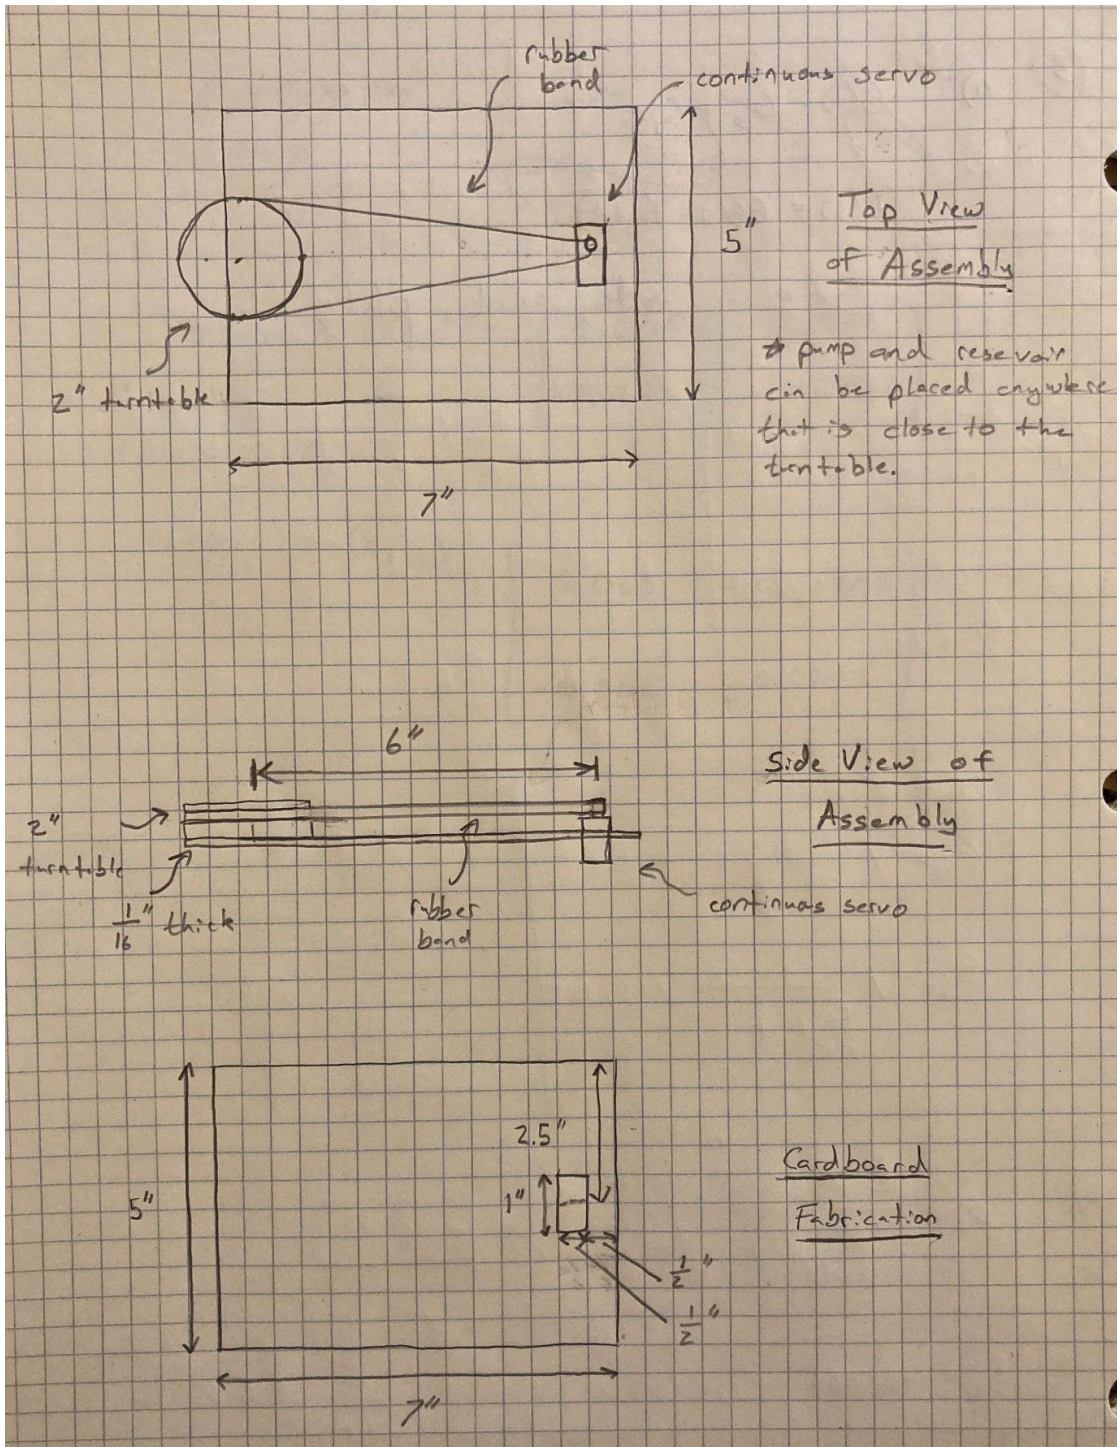 rubber
band
continuous servo
5"
Top View
of Assembly
2" turntable
* pump and resevoir
can be placed anywhere
that is close to the
turntable.
7"
6"
Side View of
Assembly
2"
turntable
1/16" thick
rubber
band
continuas servo
2.5"
1"
5"
Cardboard
Fabrication
1/2"
1/2"
7"